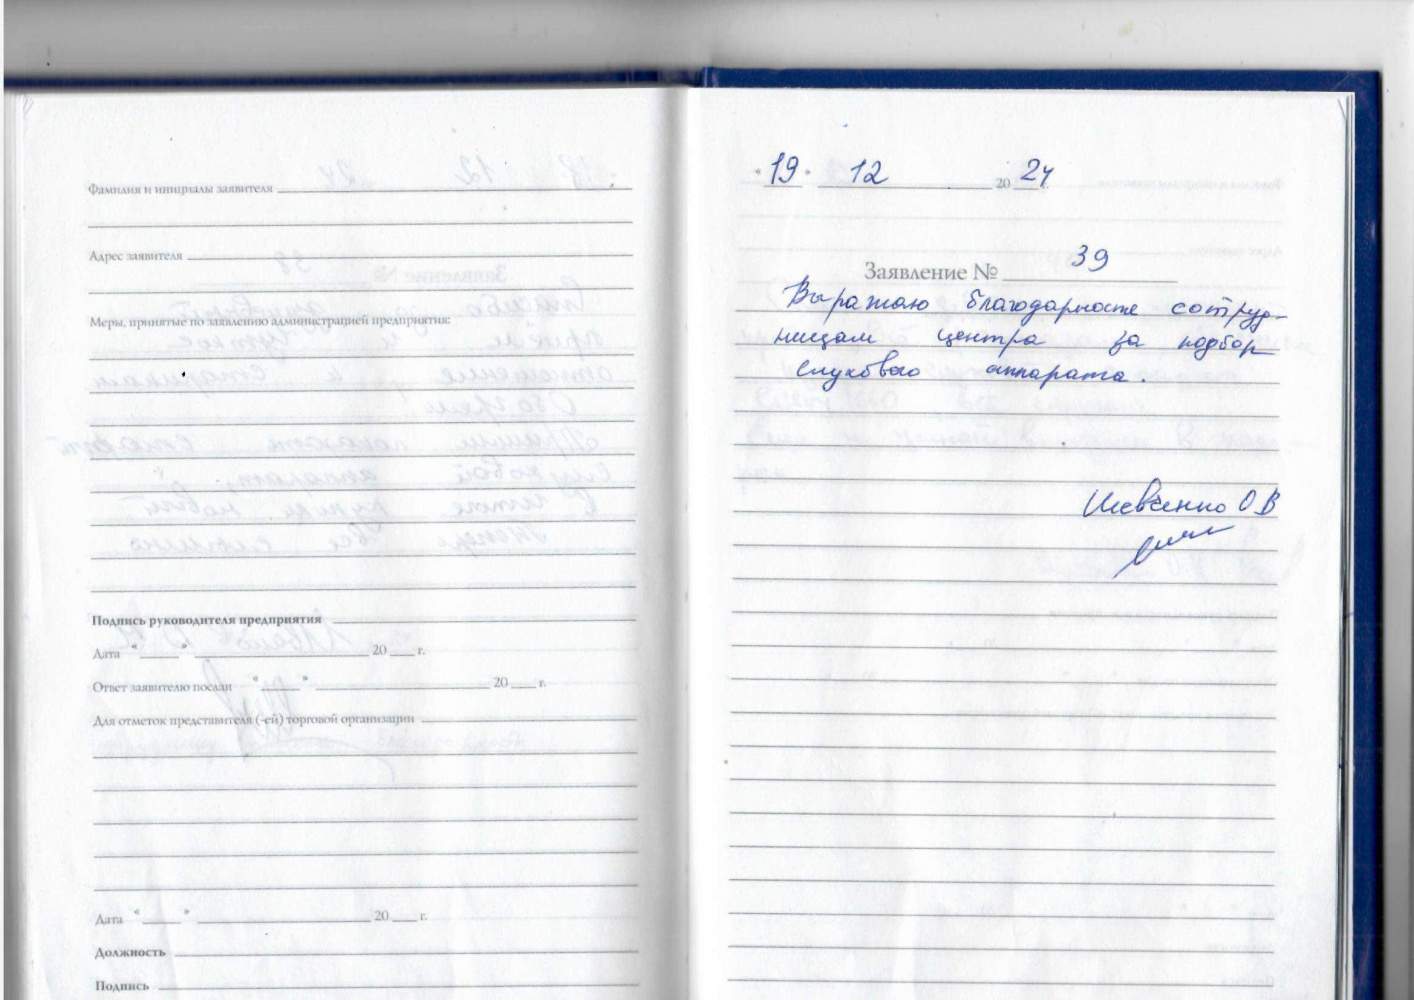 Фамилия и инициалы заявителя
Адрес заявителя
Меры, принятые по заявлению администрацией предприятия:
Подпись руководителя предприятия
Дата " " 20 г.
Ответ заявителю послан " " 20 г.
Для отметок представителя (-ей) торговой организации
Дата " " 20 г.
Должность
Подпись
"19" 12 2024
Заявление № 39
Выражаю благодарность сотруд-
ницам центра за подбор
слухового аппарата.
Шевченко О В